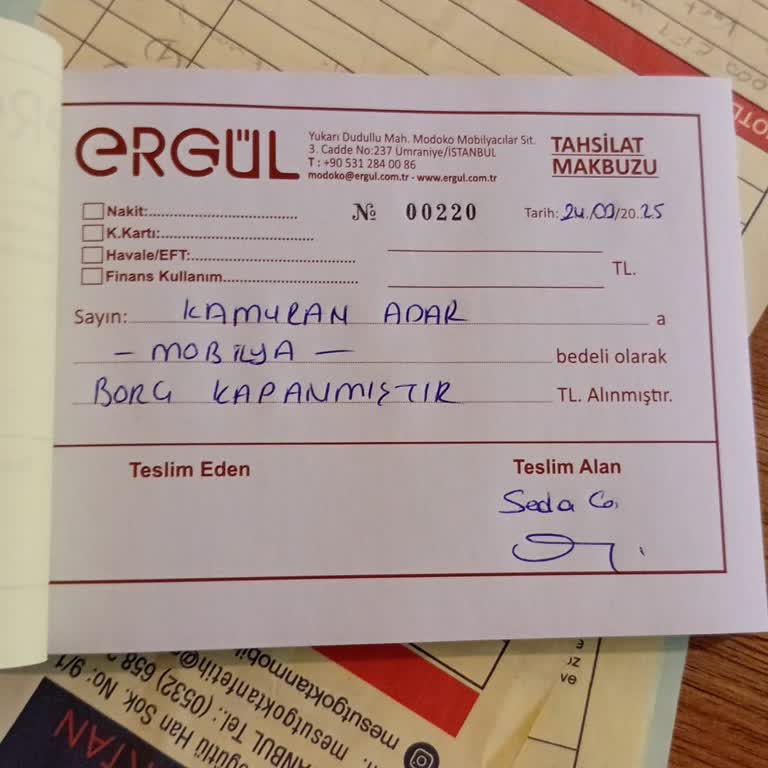 ERGÜL
Yukarı Dudullu Mah. Modoko Mobilyacılar Sit.
3. Cadde No:237 Ümraniye/İSTANBUL
T : +90 531 284 00 86
modoko@ergul.com.tr - www.ergul.com.tr
TAHSİLAT
MAKBUZU
Nakit:
K.Kartı:
Havale/EFT:
Finans Kullanım
№ 00220
Tarih: 24.09/20.25
TL.
Sayın: KAMURAN ADAR a
- MOBİLYA - bedeli olarak
BORÇ KAPANMIŞTIR TL. Alınmıştır.
Teslim Eden
Teslim Alan
Seda
mesutgoktanmobil
mesutgoktanfetih@
ANBUL Tel.: (0532) 658
Han Sok. No: 9/1